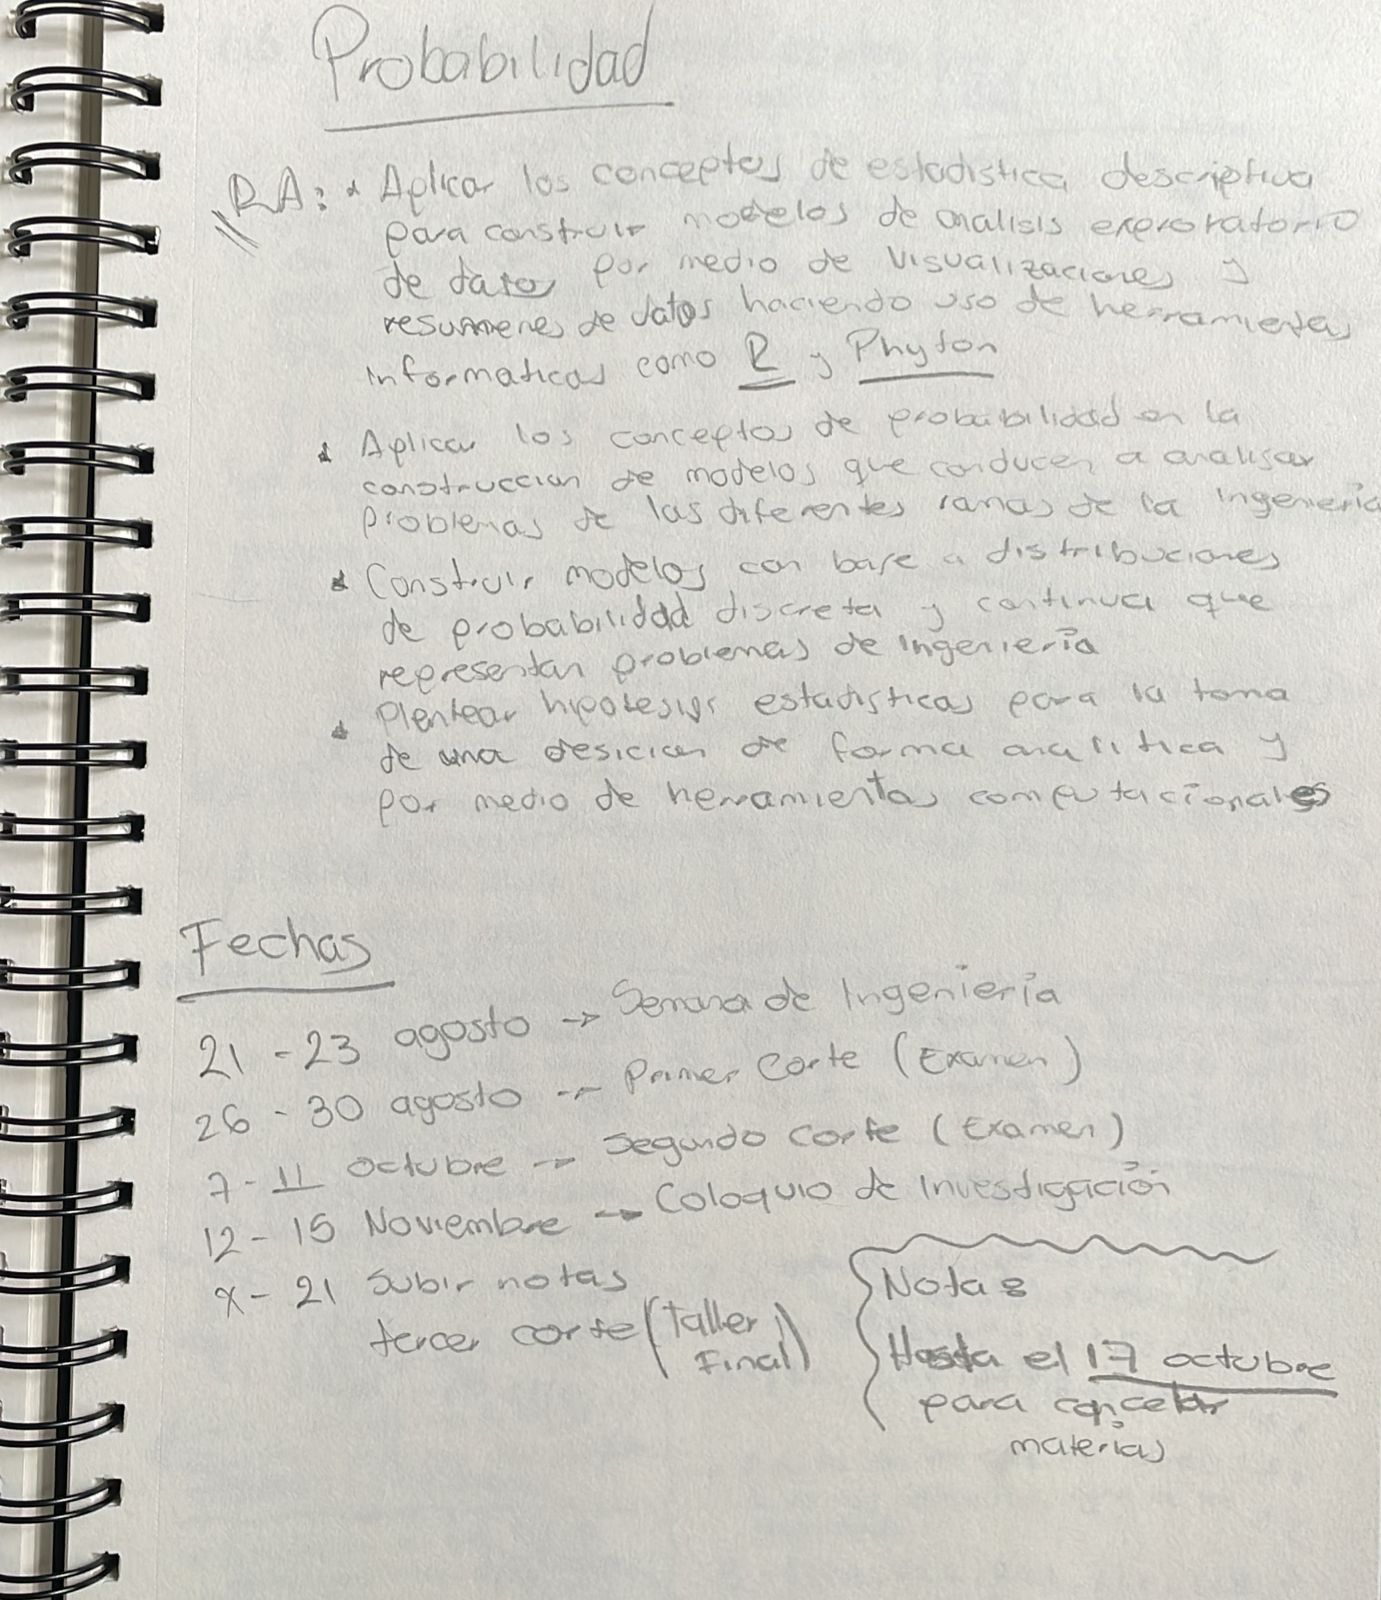 Probabilidad
RA: * Aplicar los conceptos de estadistica descriptiva
para construir modelos de analisis exproratorio
de datos por medio de visualizaciones y
resumenes de datos haciendo uso de herramientas
informaticas como R y Phyton
* Aplicar los conceptos de probabilidad en la
construccion de modelos que conducen a analisar
problemas de las diferentes ramas de la ingenieria
* Construir modelos con base a distribuciones
de probabilidad discreta y continua que
representan problemas de ingeniería
* Plentear hipotesis estadisticas para la toma
de una desicion de forma analitica y
por medio de herramientas computacionales
Fechas
21 - 23 agosto → Semana de Ingeniería
26 - 30 agosto → Primer Corte (Examen)
7 - 11 octubre → Segundo corte (Examen)
12 - 15 Noviembre → Coloquio de Investigación
x - 21 subir notas
tercer corte (Taller
Final)
Nota:
Hasta el 17 octubre
para cancelar
materias